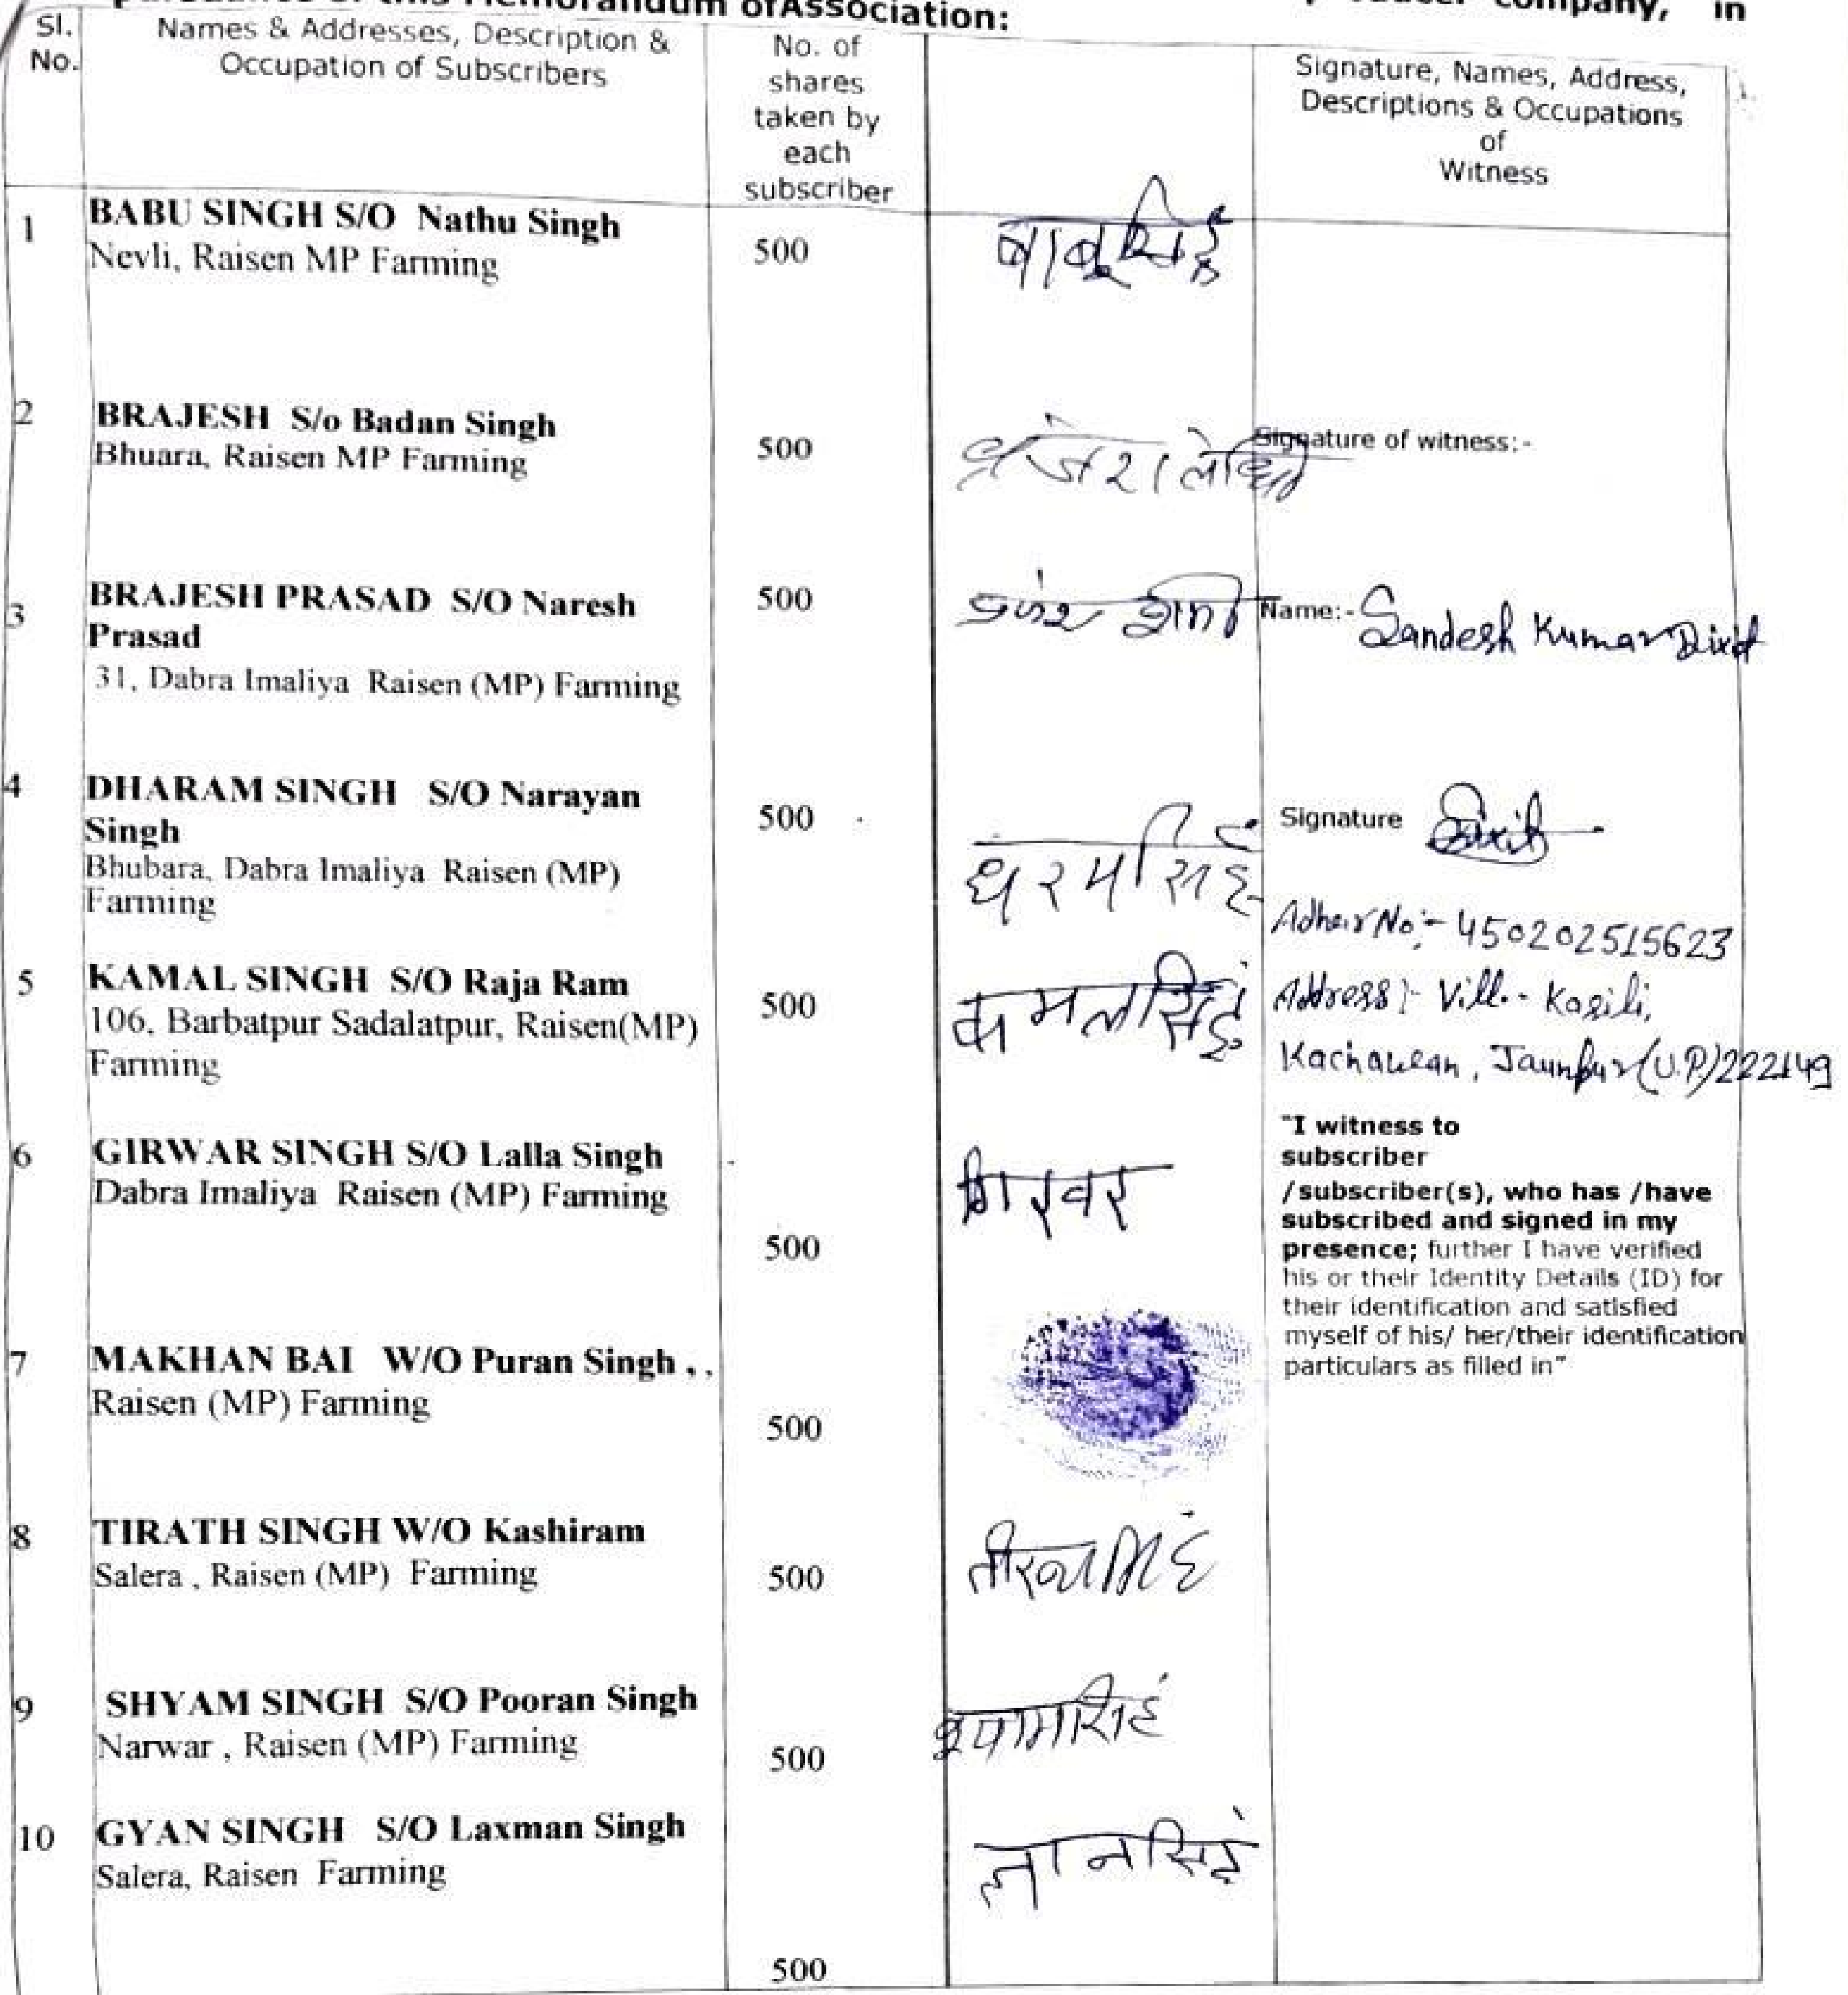 of Association:
company, in
Sl.
No.
Names & Addresses, Description &
Occupation of Subscribers
No. of
shares
taken by
each
subscriber
Signature, Names, Address,
Descriptions & Occupations
of
Witness
1
BABU SINGH S/O Nathu Singh
Nevli, Raisen MP Farming
500
बाबूसिंह
2
BRAJESH S/o Badan Singh
Bhuara, Raisen MP Farming
500
Signature of witness:-
3
BRAJESH PRASAD S/O Naresh
Prasad
31, Dabra Imaliya Raisen (MP) Farming
500
Name:- Sandesh Kumar Dixit
4
DHARAM SINGH S/O Narayan
Singh
Bhubara, Dabra Imaliya Raisen (MP)
Farming
500
धरमसिंह
Signature Dixit
Adhar No:- 450202515623
5
KAMAL SINGH S/O Raja Ram
106, Barbatpur Sadalatpur, Raisen(MP)
Farming
500
कमलसिंह
Address:- Vill.- Kagili,
Jaunpur (U.P) 222149
6
GIRWAR SINGH S/O Lalla Singh
Dabra Imaliya Raisen (MP) Farming
500
गिरवर
"I witness to
subscriber
/subscriber(s), who has /have
subscribed and signed in my
presence; further I have verified
his or their Identity Details (ID) for
their identification and satisfied
myself of his/ her/their identification
particulars as filled in"
7
MAKHAN BAI W/O Puran Singh , ,
Raisen (MP) Farming
500
8
TIRATH SINGH W/O Kashiram
Salera , Raisen (MP) Farming
500
9
SHYAM SINGH S/O Pooran Singh
Narwar , Raisen (MP) Farming
500
श्यामसिंह
10
GYAN SINGH S/O Laxman Singh
Salera, Raisen Farming
500